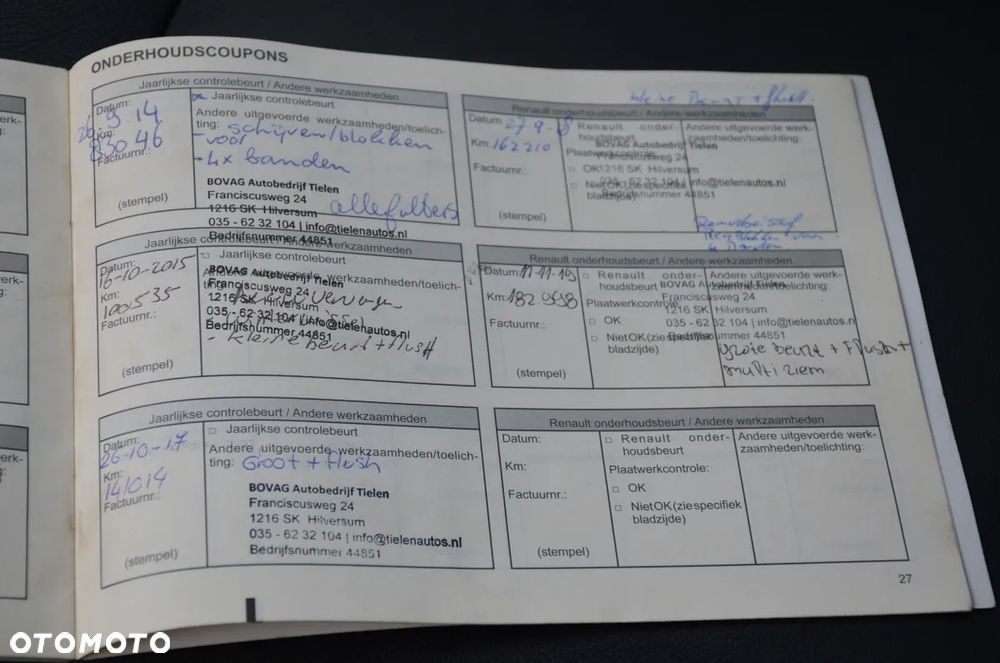 ONDERHOUDSCOUPONS
Jaarlijkse controlebeurt / Andere werkzaamheden
Datum:
26-9-14
Km:
83046
Factuurnr.:
(stempel)
Jaarlijkse controlebeurt
Andere uitgevoerde werkzaamheden/toelich-
ting: schijven/blokken
voor
- 4x banden
alle filters
BOVAG Autobedrijf Tielen
Franciscusweg 24
1216 SK Hilversum
035 - 62 32 104 | info@tielenautos.nl
Bedrijfsnummer 44851
Jaarlijkse controlebeurt / Andere werkzaamheden
Datum:
16-10-2015
Km:
100535
Factuurnr.:
(stempel)
Jaarlijkse controlebeurt
Andere uitgevoerde werkzaamheden/toelich-
ting:
BOVAG Autobedrijf Tielen
Franciscusweg 24
1216 SK Hilversum
035 - 62 32 104 | info@tielenautos.nl
Bedrijfsnummer 44851
- kleine beurt + flush
Jaarlijkse controlebeurt / Andere werkzaamheden
Datum:
26-10-17
Km:
141014
Factuurnr.:
(stempel)
Jaarlijkse controlebeurt
Andere uitgevoerde werkzaamheden/toelich-
ting: Groot + flush
BOVAG Autobedrijf Tielen
Franciscusweg 24
1216 SK Hilversum
035 - 62 32 104 | info@tielenautos.nl
Bedrijfsnummer 44851
Renault onderhoudsbeurt / Andere werkzaamheden
Datum: 27-9-18
Km: 162210
Factuurnr.:
(stempel)
Renault onder-
houdsbeurt
Plaatwerkcontrole:
OK
Niet OK (zie specifiek
bladzijde)
Andere uitgevoerde werk-
zaamheden/toelichting:
BOVAG Autobedrijf Tielen
Franciscusweg 24
1216 SK Hilversum
035 - 62 32 104 | info@tielenautos.nl
Bedrijfsnummer 44851
Renault onderhoudsbeurt / Andere werkzaamheden
Datum: 11-11-19
Km:
Factuurnr.:
(stempel)
Renault onder-
houdsbeurt
Plaatwerkcontrole:
OK
Niet OK (zie specifiek
bladzijde)
Andere uitgevoerde werk-
zaamheden/toelichting:
BOVAG Autobedrijf Tielen
Franciscusweg 24
1216 SK Hilversum
035 - 62 32 104 | info@tielenautos.nl
Bedrijfsnummer 44851
grote beurt + Flush +
multi riem
Renault onderhoudsbeurt / Andere werkzaamheden
Datum:
Km:
Factuurnr.:
(stempel)
Renault onder-
houdsbeurt
Plaatwerkcontrole:
OK
Niet OK (zie specifiek
bladzijde)
Andere uitgevoerde werk-
zaamheden/toelichting:
27
OTOMOTO